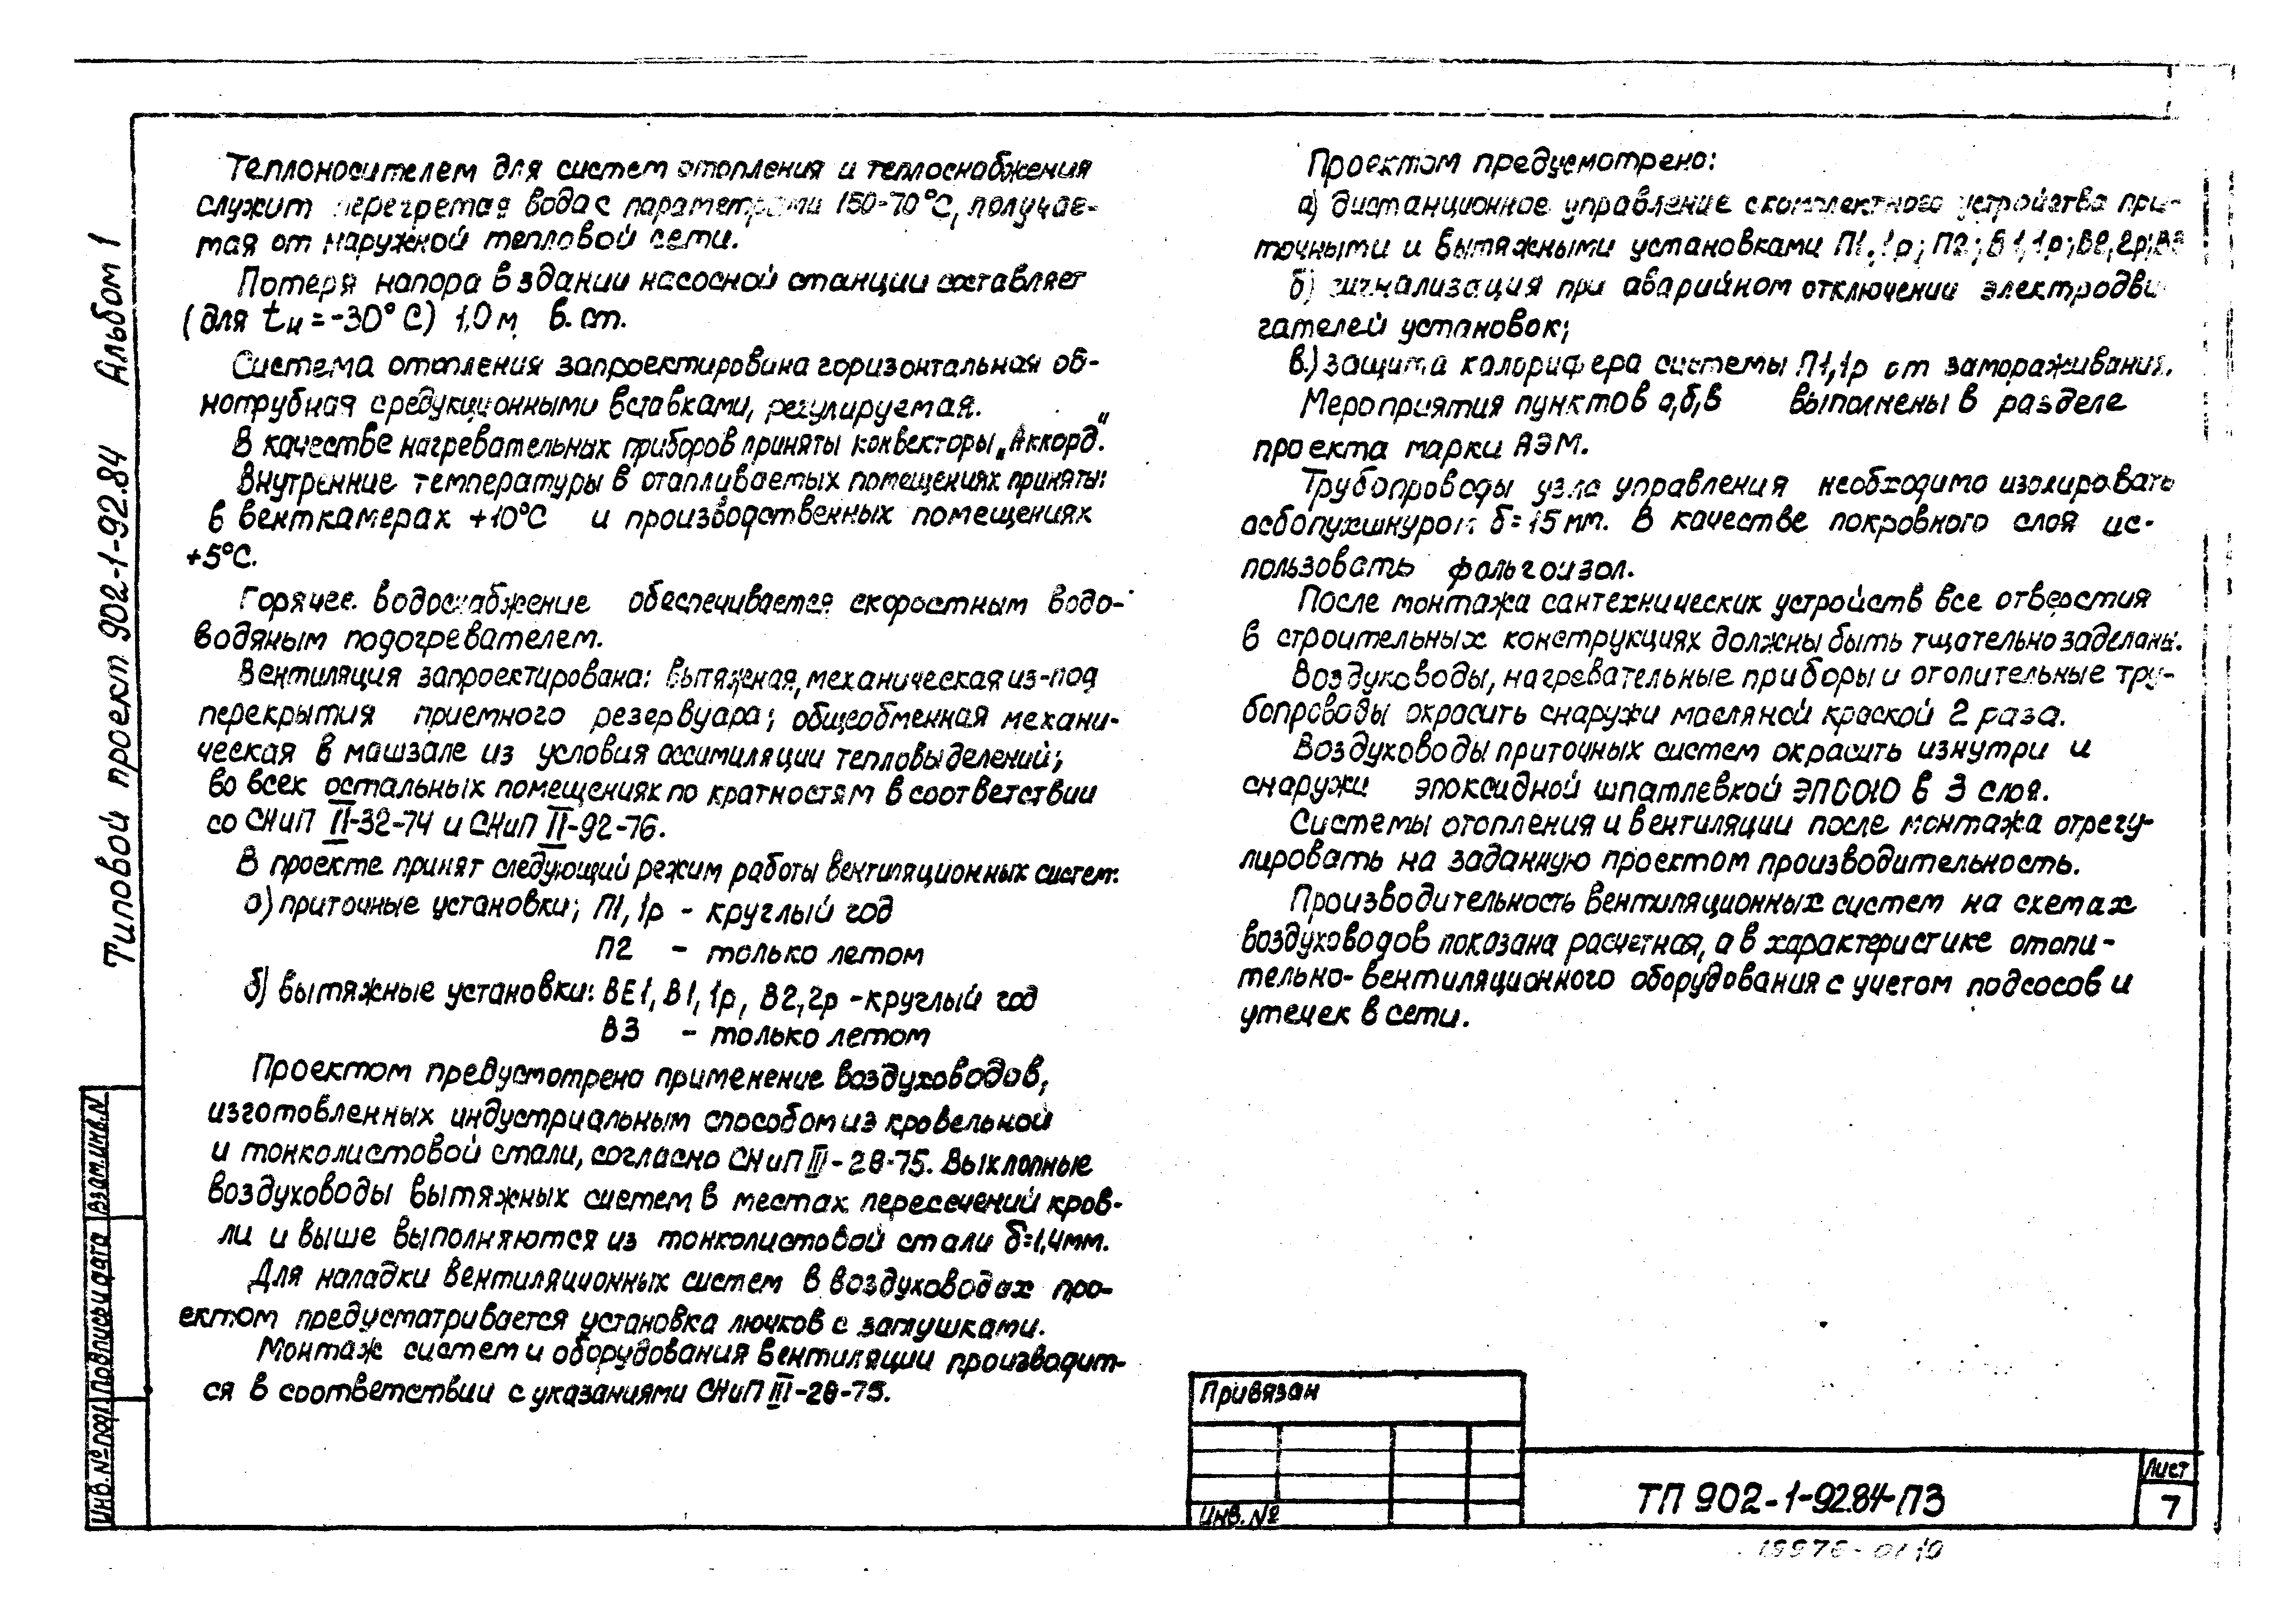 Типовой проект 902-1-92.84 Альбом 1
Теплоносителем для систем отопления и теплоснабжения
служит перегретая вода с параметрами 150-70°С, получае-
мая от наружной тепловой сети.
Потеря напора в здании насосной станции составляет
(для tн = -30°С) 1,0 м в. ст.
Система отопления запроектирована горизонтальная од-
нотрубная с редукционными вставками, регулируемая.
В качестве нагревательных приборов приняты конвекторы „Аккорд".
Внутренние температуры в отапливаемых помещениях приняты:
в венткамерах +10°С и производственных помещениях
+5°С.
Горячее водоснабжение обеспечивается скоростным водо-
водяным подогревателем.
Вентиляция запроектирована: вытяжная, механическая из-под
перекрытия приемного резервуара; общеобменная механи-
ческая в машзале из условия ассимиляции тепловыделений;
во всех остальных помещениях по кратностям в соответствии
со СНиП II-32-74 и СНиП II-92-76.
В проекте принят следующий режим работы вентиляционных систем:
а) приточные установки; П1, 1р - круглый год
П2 - только летом
б) вытяжные установки: ВЕ1, В1, 1р, В2, 2р - круглый год
В3 - только летом
Проектом предусмотрено применение воздуховодов,
изготовленных индустриальным способом из кровельной
и тонколистовой стали, согласно СНиП III-28-75. Выхлопные
воздуховоды вытяжных систем в местах пересечений кров-
ли и выше выполняются из тонколистовой стали δ=1,4мм.
Для наладки вентиляционных систем в воздуховодах про-
ектом предусматривается установка лючков с заглушками.
Монтаж систем и оборудования вентиляции производит-
ся в соответствии с указаниями СНиП III-28-75.
Проектом предусмотрено:
а) дистанционное управление с комплектного устройства при-
точными и вытяжными установками П1, 1р; П2; В1, 1р; В2, 2р; В3
б) сигнализация при аварийном отключении электродви
гателей установок;
в.) защита калорифера системы П1, 1р от замораживания.
Мероприятия пунктов а, б, в выполнены в разделе
проекта марки АЭМ.
Трубопроводы узла управления необходимо изолировать
асбопухшнуром δ=15мм. В качестве покровного слоя ис-
пользовать фольгоизол.
После монтажа сантехнических устройств все отверстия
в строительных конструкциях должны быть тщательно заделаны.
Воздуховоды, нагревательные приборы и отопительные тру-
бопроводы окрасить снаружи масляной краской 2 раза.
Воздуховоды приточных систем окрасить изнутри и
снаружи эпоксидной шпатлевкой ЭП0010 в 3 слоя.
Системы отопления и вентиляции после монтажа отрегу-
лировать на заданную проектом производительность.
Производительность вентиляционных систем на схемах
воздуховодов показана расчетная, а в характеристике отопи-
тельно-вентиляционного оборудования с учетом подсосов и
утечек в сети.
Инв. № подл Подпись и дата Взам.инв.N
Привязан
Инв. №
ТП 902-1-92.84-ПЗ
Лист
7
19976-01 10